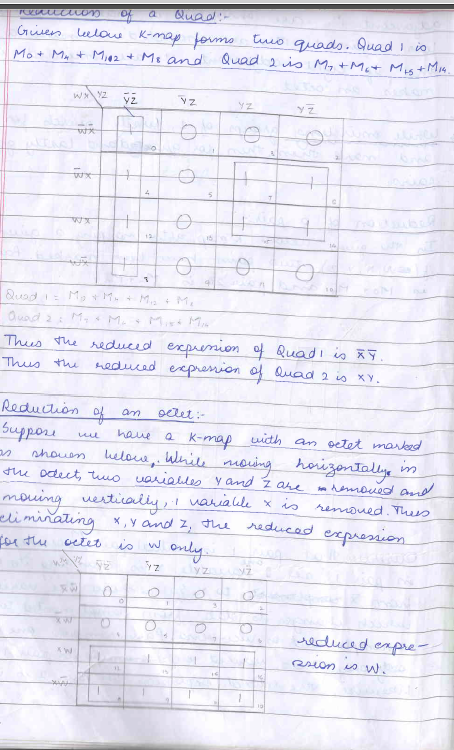 Reduction of a Quad:-
Given below K-map forms two quads. Quad 1 is
M0 + M4 + M12 + M8 and Quad 2 is M7 + M6 + M15 + M14.
WX YZ Y̅Z̅ Y̅Z YZ YZ̅
W̅X̅ 1 0 0 0
W̅X 1 4 0 5 1 7 1 6
WX 1 12 0 13 1 15 1 14
WX̅ 1 8 0 0 0 10
Quad 1 = M0 + M4 + M12 + M8
Quad 2 = M7 + M6 + M15 + M14
Thus the reduced expression of Quad 1 is X̅Y̅.
Thus the reduced expression of Quad 2 is XY.
Reduction of an octet:-
Suppose we have a K-map with an octet marked
as shown below. While moving horizontally in
the octect, two variables Y and Z are removed and
moving vertically, 1 variable X is removed. Thus
eliminating X, Y and Z, the reduced expression
for the octet is W only.
Y̅Z̅ Y̅Z YZ YZ̅
0 0 0 1 0 3 0 2
0 0 0 0
1 12 1 13 1 15 1 14
1 8 1 9 1 11 1 10
reduced expre-
ssion is W.